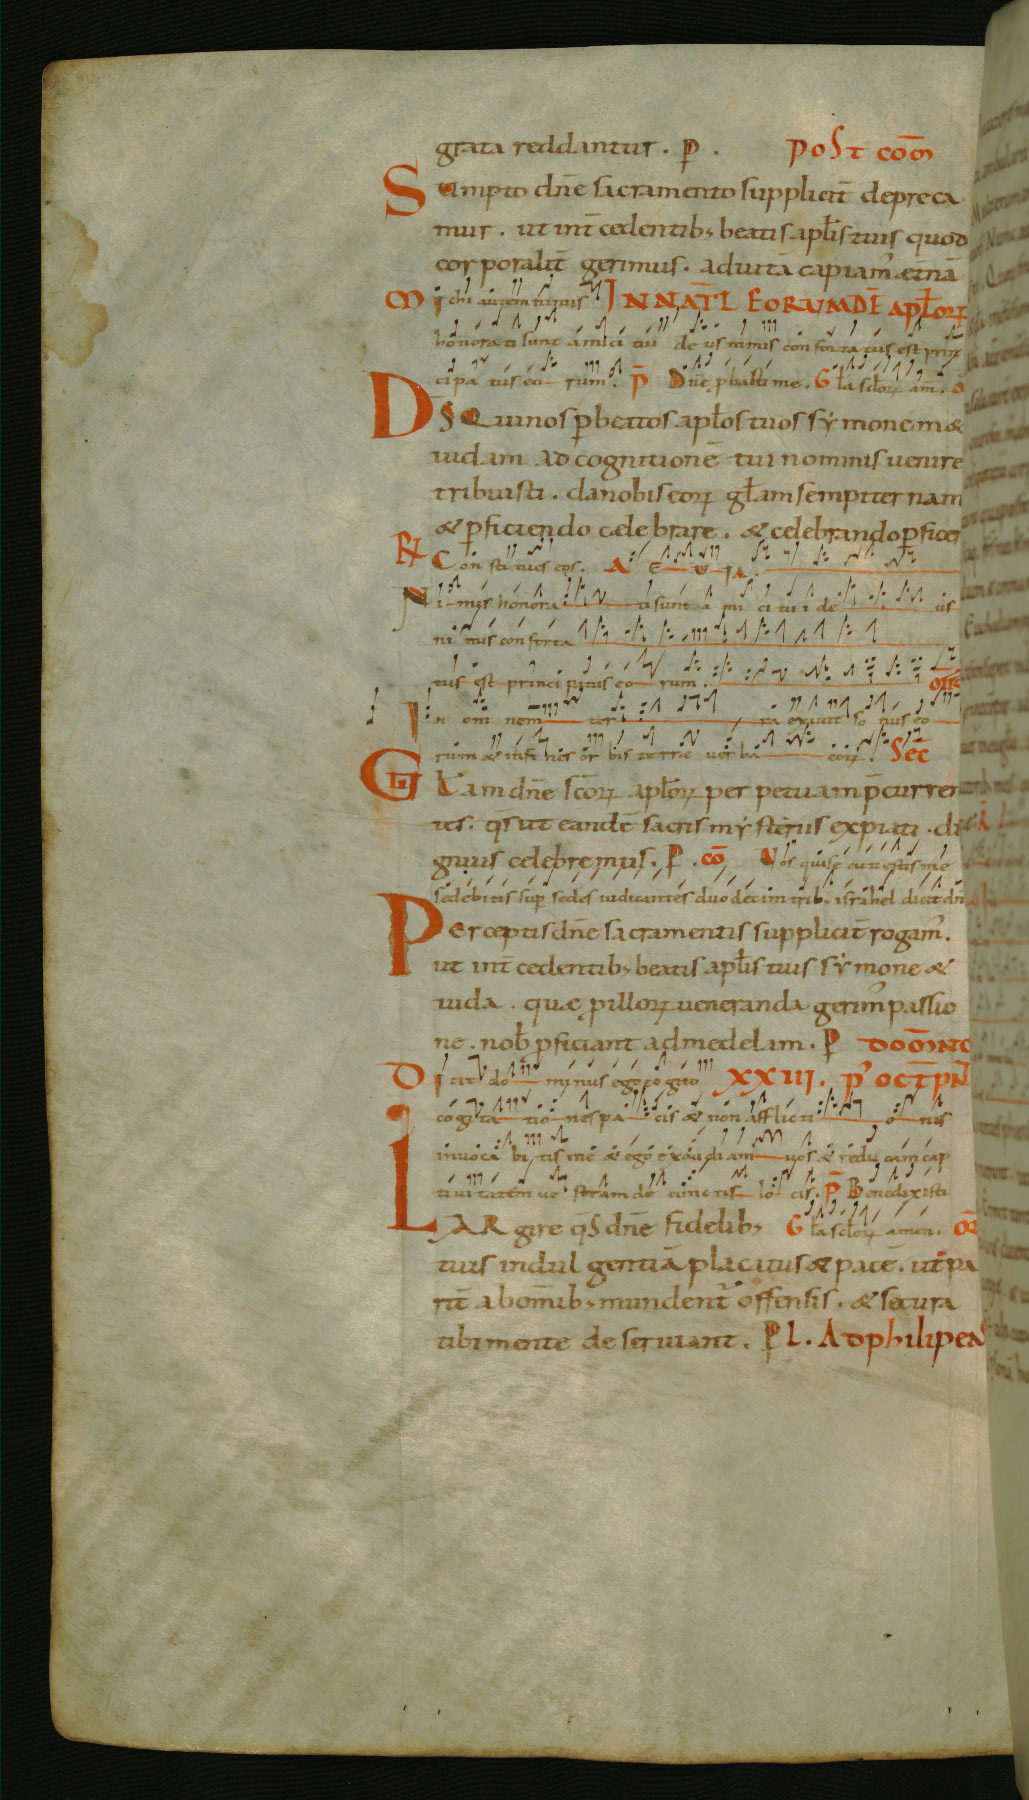 grata reddantur. P. PoST cōm
Sumpto dn̄e sacramento suppliciť depreca
mur. ut int̄cedentib; beatis apl̄is tuis quod
corporalit̄ gerimus. aduitā capiam' æt̄nā
Michi autem nimis IN NAT̄L EORUMDĒ APL̄ORꝝ
honorati sunt amici tui deus nimis confortatus est prin
cipatus eorum. P̄ Dn̄e pbasti me. Gl̄a sclorꝝ am̄.
DS̄ Qui nos p beatos apl̄os tuos sỳmonem &
iudam ad cognitionē tui nominis uenire
tribuisti. da nobis eorꝝ gl̄am sempiternam
& pficiendo cælebrare. & celebrando pficer
R̄ Constitues eos. AEUIA.
Nimis honorati sunt amici tui deus
nimis conforta
tus est principatus eorum. OFF̄
In omnem terra exiuit sonus eo
rum & in fines orbis terræ uerba eorꝝ. Sec̄
Gl̄am dn̄e sc̄orꝝ apl̄orꝝ perpetuam p̄curren
tes. qs̄ ut eandē sacris mỳsteriis expiati. di
gnius celebremus. P. cō Uos qui secuti estis me
sedebitis sup sedes iudicantes duodecim trib; israhel dicit dn̄s
Perceptis dn̄e sacramentis supplicit̄ rogam'.
ut int̄cedentib; beatis apl̄is tuis sỳmone &
iuda. quæ p illorꝝ ueneranda gerim' passio
ne. nob̄ pficiant ad medelam. P DOM̄INC
Dicit dominus ego cogito XXIII. P' OCT̄ PN̄
cogitationes pacis & non afflictionis
inuocabitis me & ego exaudiam uos & reducam cap
tiuitatem uestram de cunctis locis. P̄ Benedixisti
LARgire qs̄ dn̄e fidelib; Gl̄a sclorꝝ amen. OR̄
tuis indulgentiā placatus & pacē. ut pa
rit̄ ab om̄ib; mundent' offensis. & secura
tibi mente deseruiant. P L. Ad philipen̄s